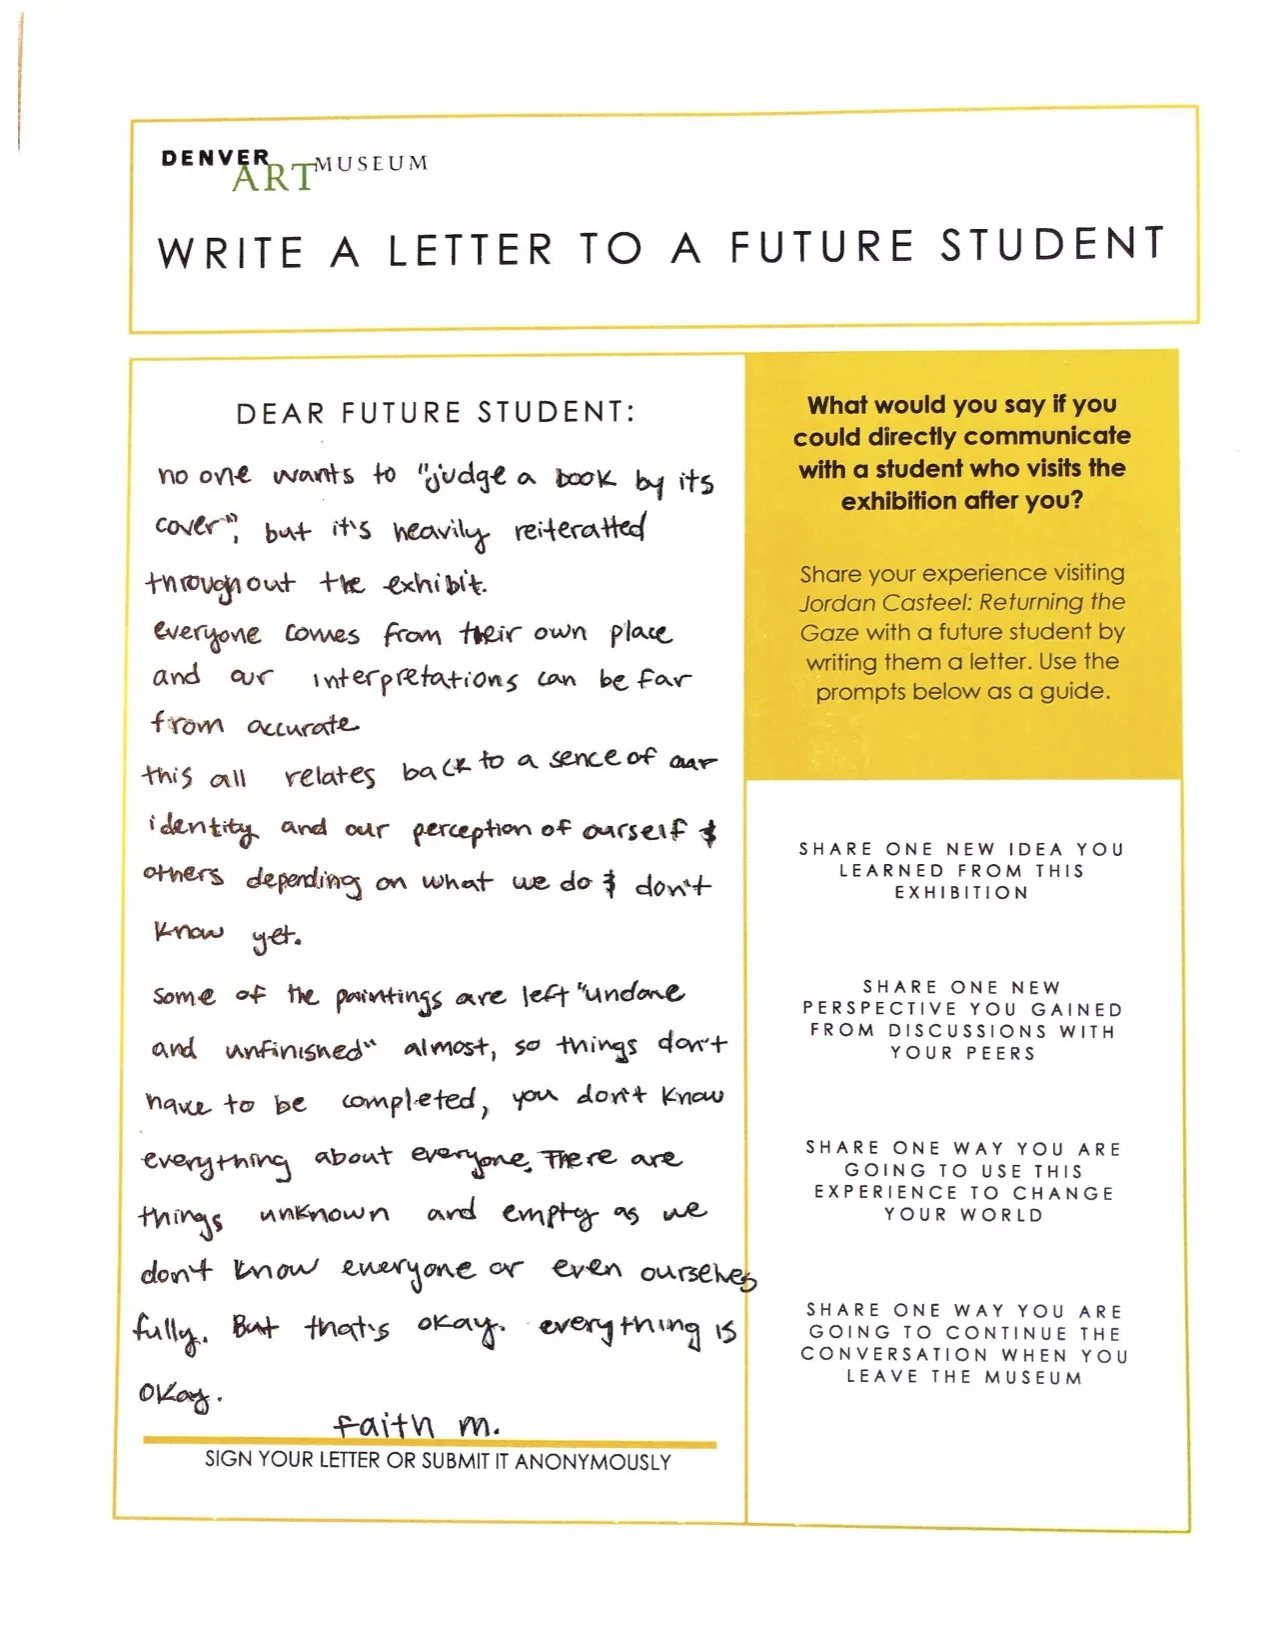 DENVER
ART MUSEUM
WRITE A LETTER TO A FUTURE STUDENT
DEAR FUTURE STUDENT:
no one wants to "judge a book by its
cover", but it's heavily reiteratted
throughout the exhibit.
everyone comes from their own place
and our interpretations can be far
from accurate
this all relates back to a sence of our
identity and our perception of ourself &
others depending on what we do & don't
know yet.
some of the paintings are left "undone
and unfinished" almost, so things don't
have to be completed, you don't know
everything about everyone. There are
things unknown and empty as we
don't know everyone or even ourselves
fully. But that's okay. everything is
okay.
faith m.
SIGN YOUR LETTER OR SUBMIT IT ANONYMOUSLY
What would you say if you
could directly communicate
with a student who visits the
exhibition after you?
Share your experience visiting
Jordan Casteel: Returning the
Gaze with a future student by
writing them a letter. Use the
prompts below as a guide.
SHARE ONE NEW IDEA YOU
LEARNED FROM THIS
EXHIBITION
SHARE ONE NEW
PERSPECTIVE YOU GAINED
FROM DISCUSSIONS WITH
YOUR PEERS
SHARE ONE WAY YOU ARE
GOING TO USE THIS
EXPERIENCE TO CHANGE
YOUR WORLD
SHARE ONE WAY YOU ARE
GOING TO CONTINUE THE
CONVERSATION WHEN YOU
LEAVE THE MUSEUM